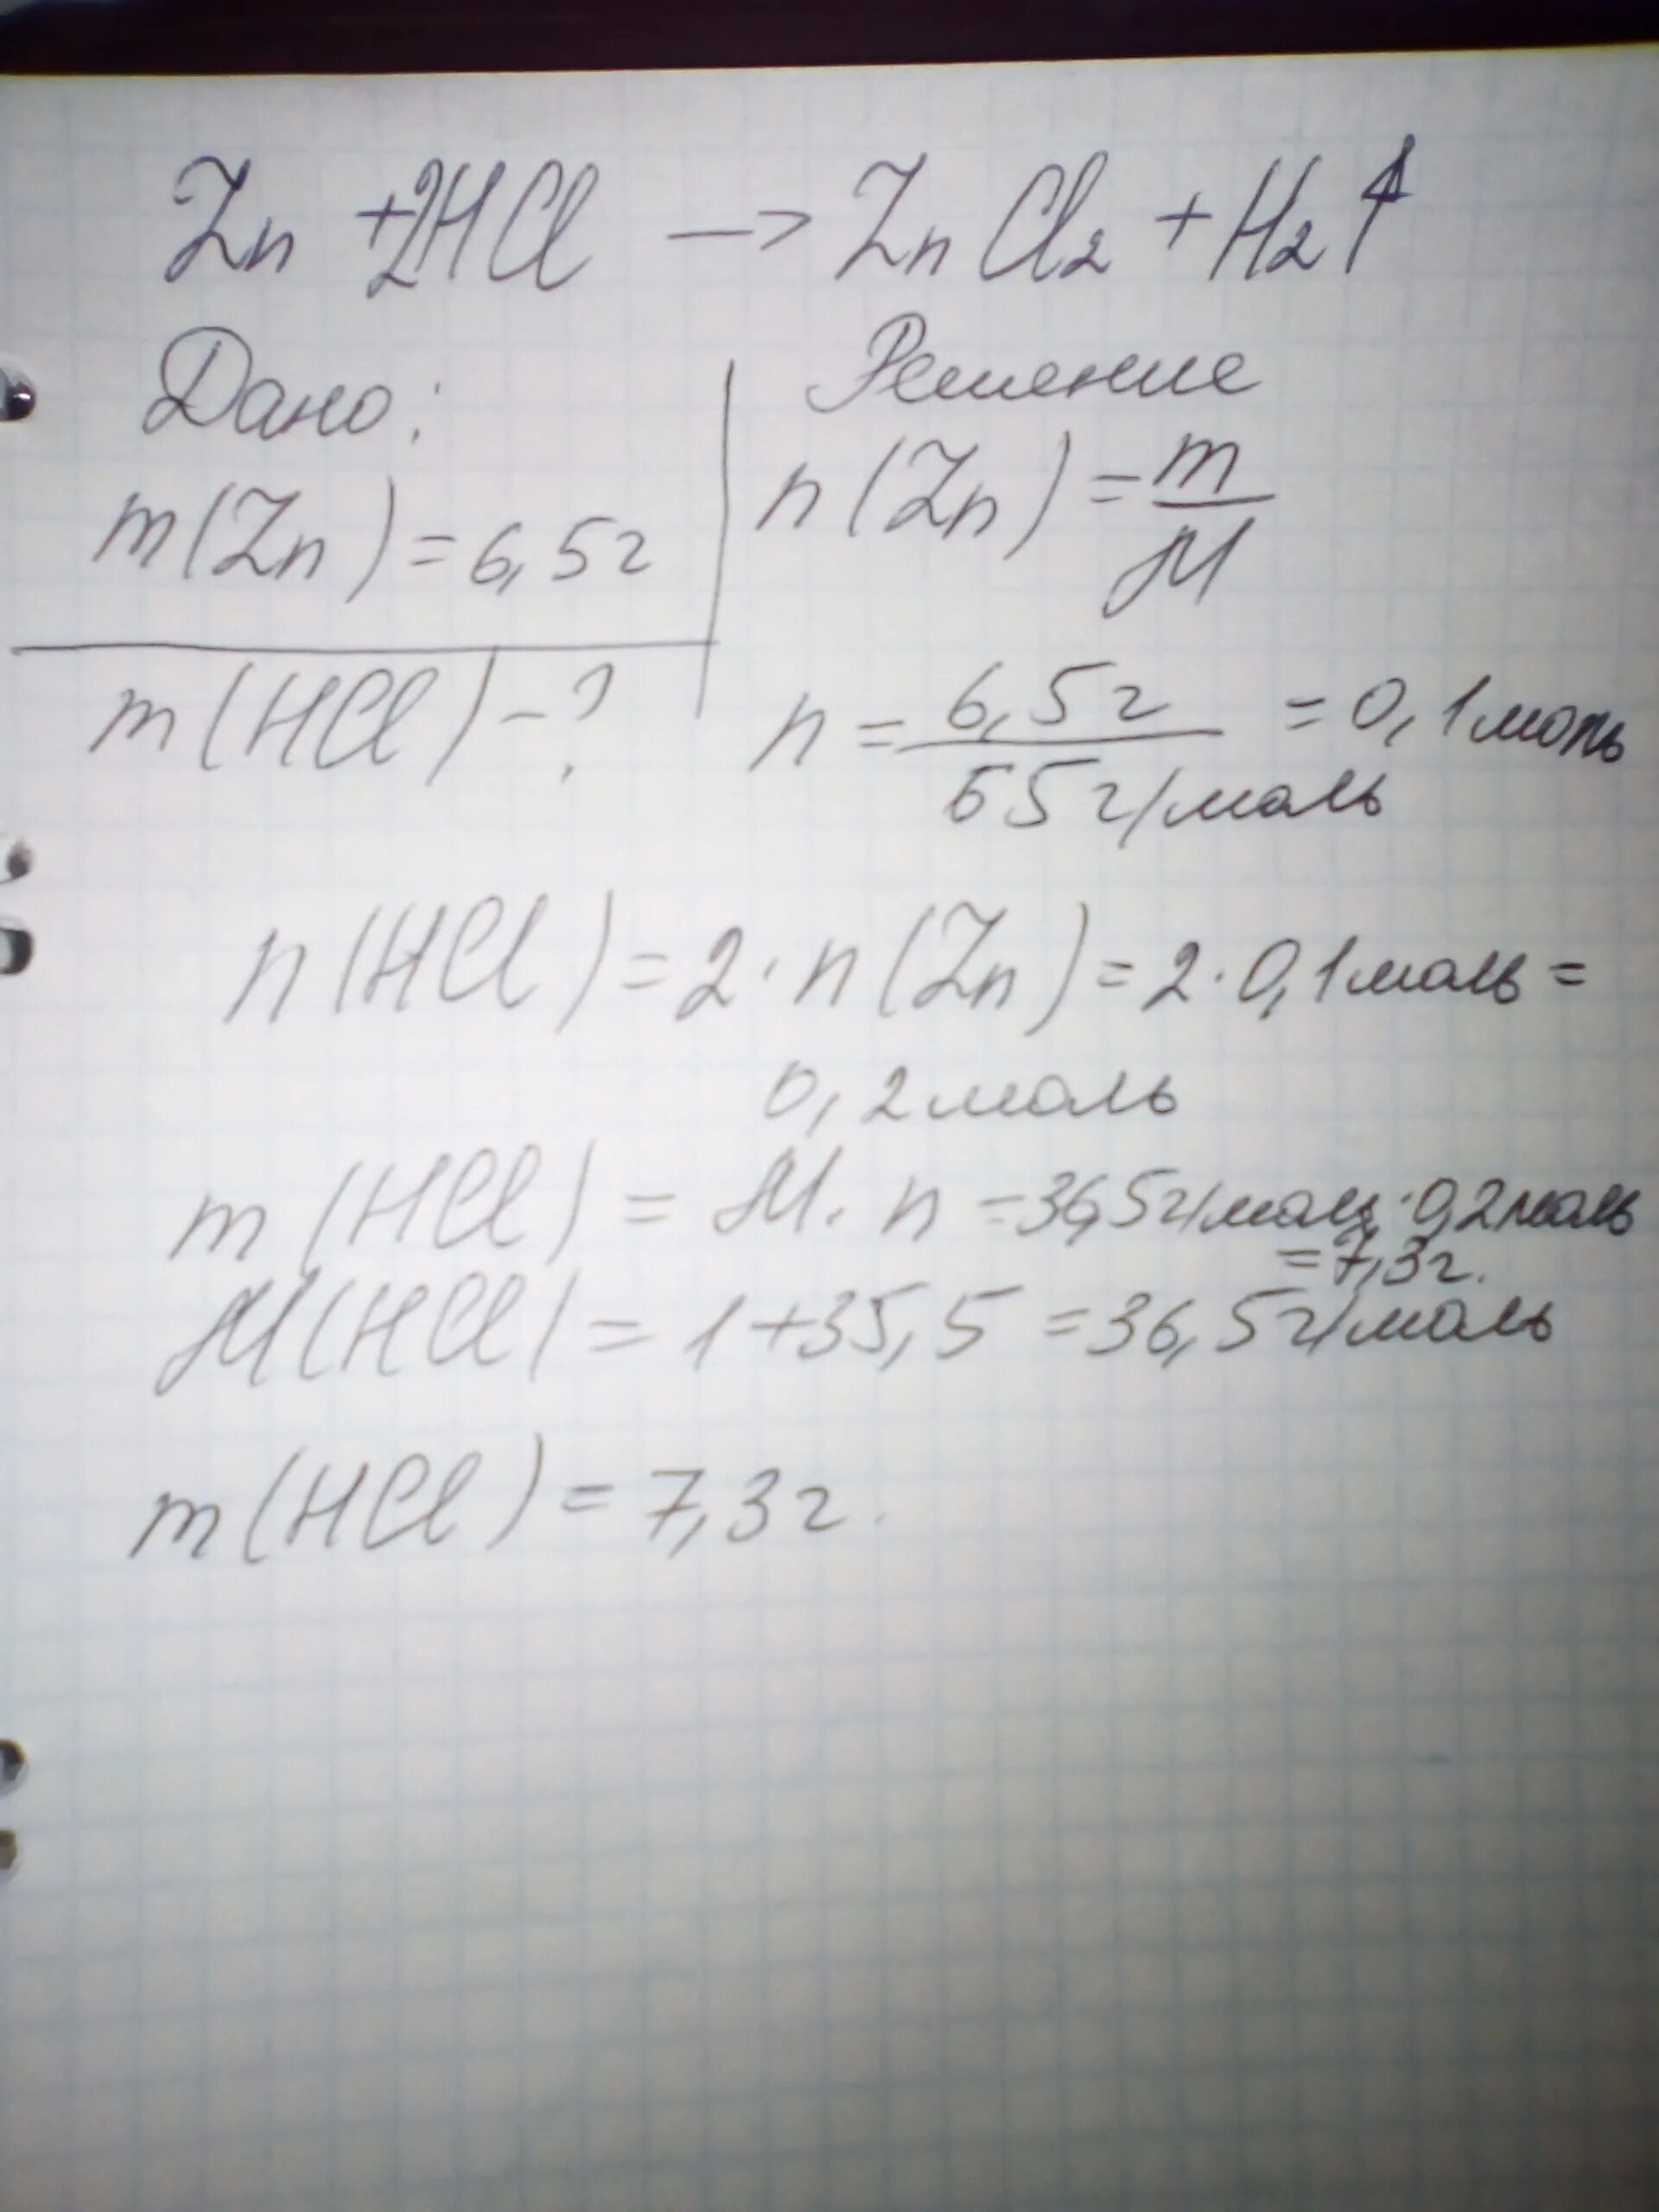 Zn + 2HCl → ZnCl₂ + H₂↑
Дано:
m(Zn) = 6,5г
m(HCl) - ?
Решение
n(Zn) = m/M
n = 6,5г / 65г/моль = 0,1моль
n(HCl) = 2 · n(Zn) = 2 · 0,1моль =
0,2моль
m(HCl) = M · n = 36,5г/моль · 0,2моль
= 7,3г.
M(HCl) = 1 + 35,5 = 36,5г/моль
m(HCl) = 7,3г.